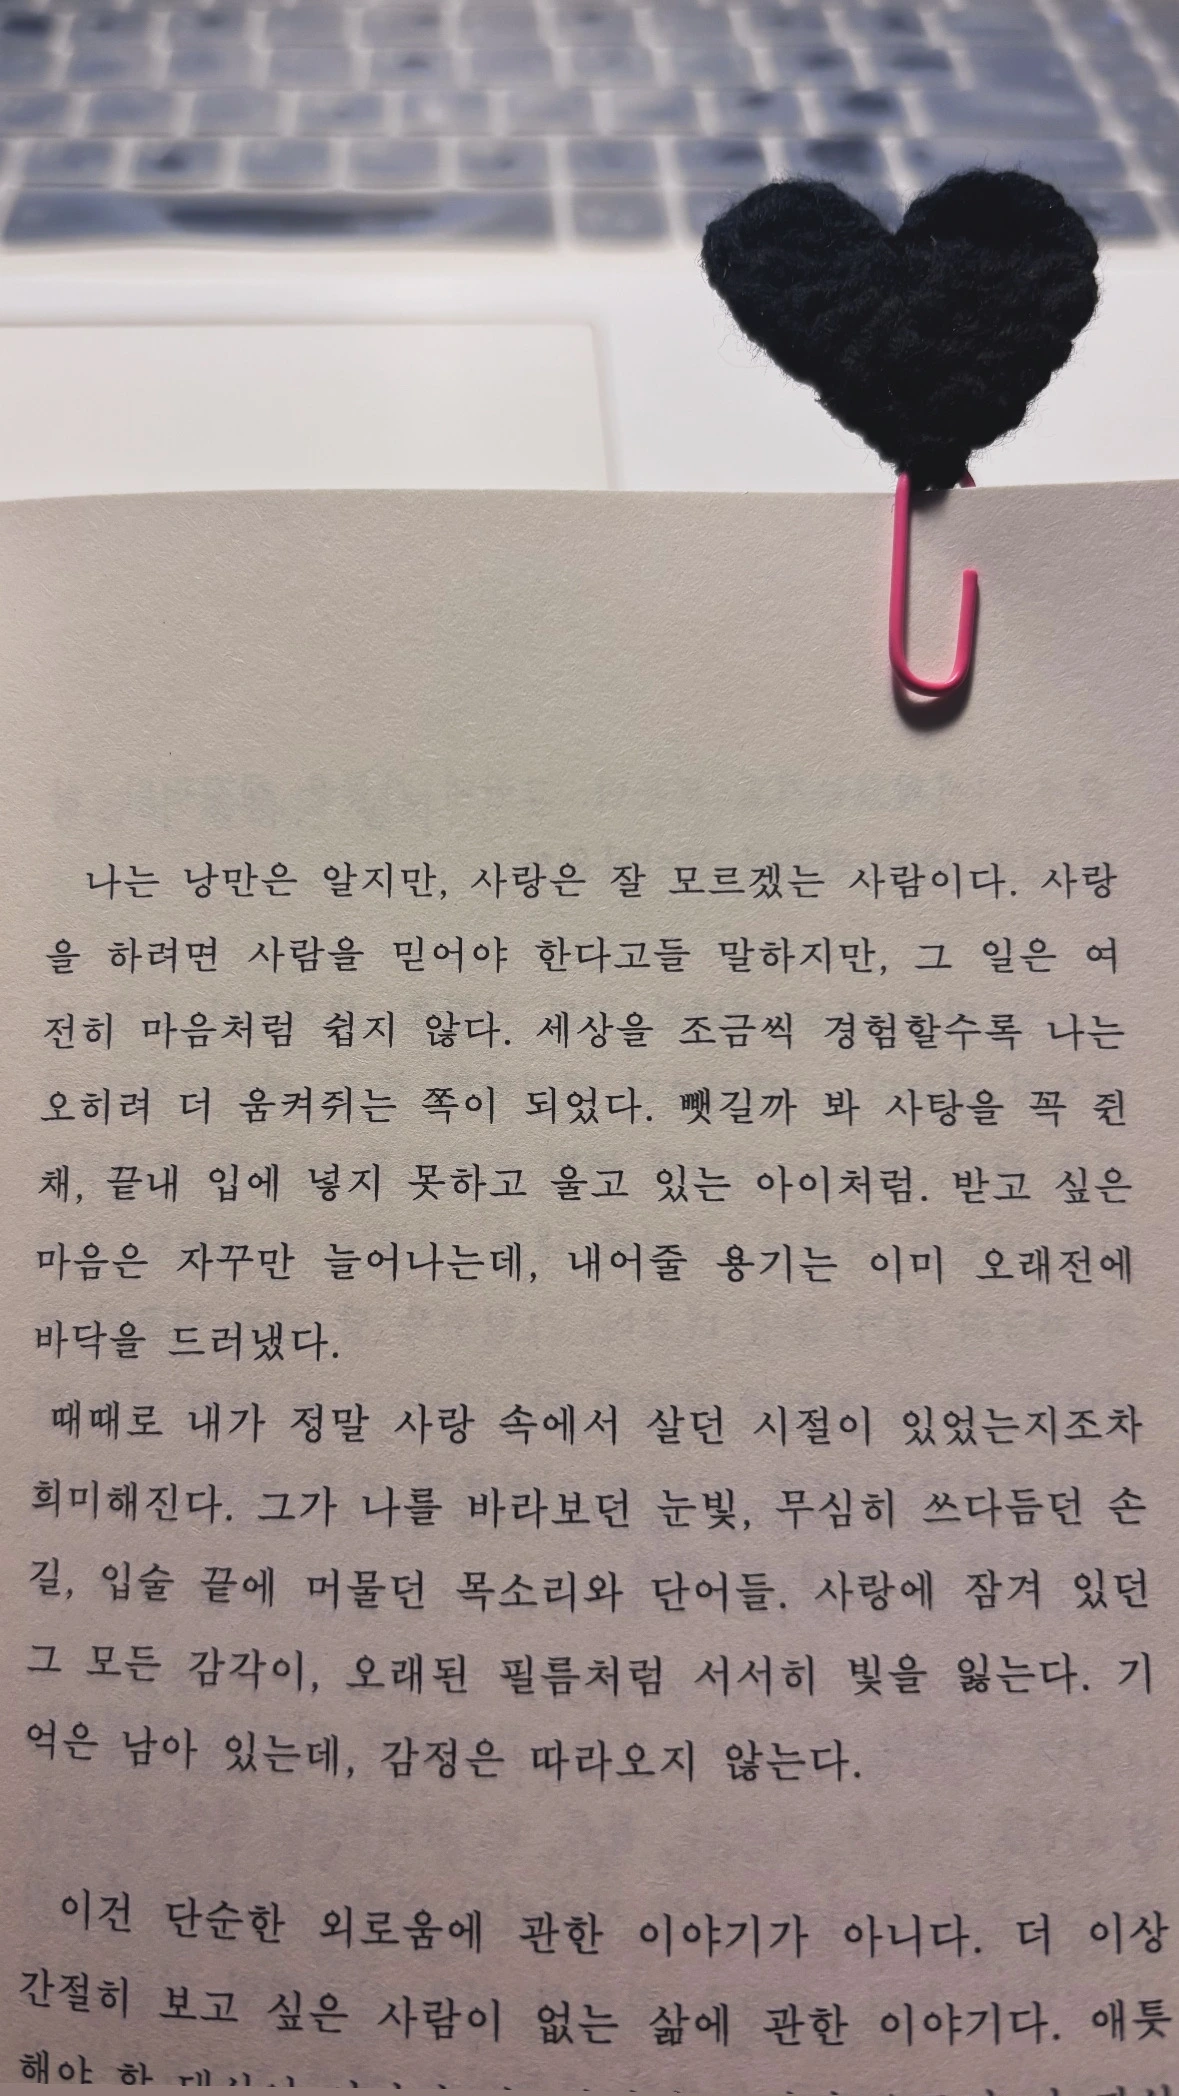 나는 낭만은 알지만, 사랑은 잘 모르겠는 사람이다. 사랑
을 하려면 사람을 믿어야 한다고들 말하지만, 그 일은 여
전히 마음처럼 쉽지 않다. 세상을 조금씩 경험할수록 나는
오히려 더 움켜쥐는 쪽이 되었다. 뺏길까 봐 사탕을 꼭 쥔
채, 끝내 입에 넣지 못하고 울고 있는 아이처럼. 받고 싶은
마음은 자꾸만 늘어나는데, 내어줄 용기는 이미 오래전에
바닥을 드러냈다.
때때로 내가 정말 사랑 속에서 살던 시절이 있었는지조차
희미해진다. 그가 나를 바라보던 눈빛, 무심히 쓰다듬던 손
길, 입술 끝에 머물던 목소리와 단어들. 사랑에 잠겨 있던
그 모든 감각이, 오래된 필름처럼 서서히 빛을 잃는다. 기
억은 남아 있는데, 감정은 따라오지 않는다.
이건 단순한 외로움에 관한 이야기가 아니다. 더 이상
간절히 보고 싶은 사람이 없는 삶에 관한 이야기다. 애틋
해야 할